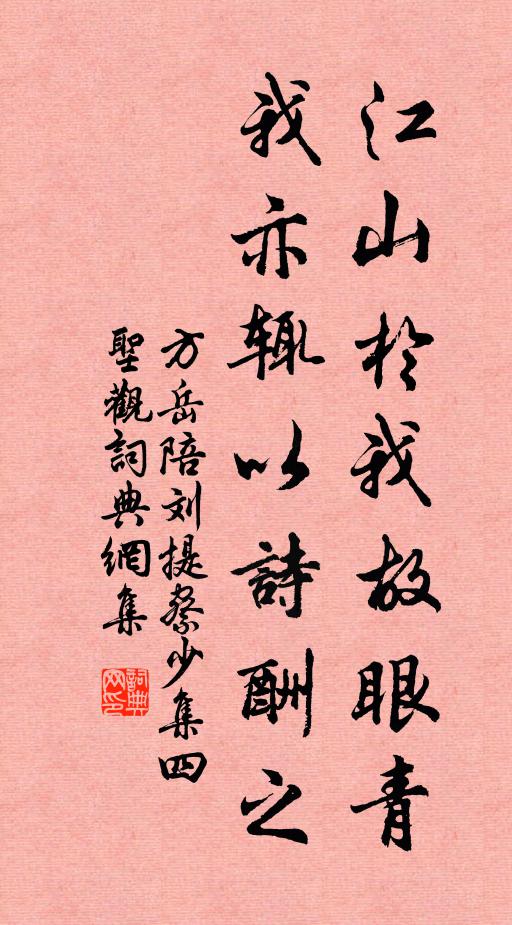 江山於我故眼青
我亦辄以詩酬之
方岳陪刘提察少集四
聖觀詞典網集
詞典网印